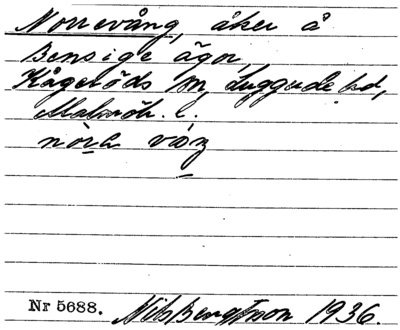 Norrevång, åker å
Bensige ägor,
Kågeröds sn, Luggude hd,
Malmöh. l.
Nr 5688. Nils Bengtsson 1936.